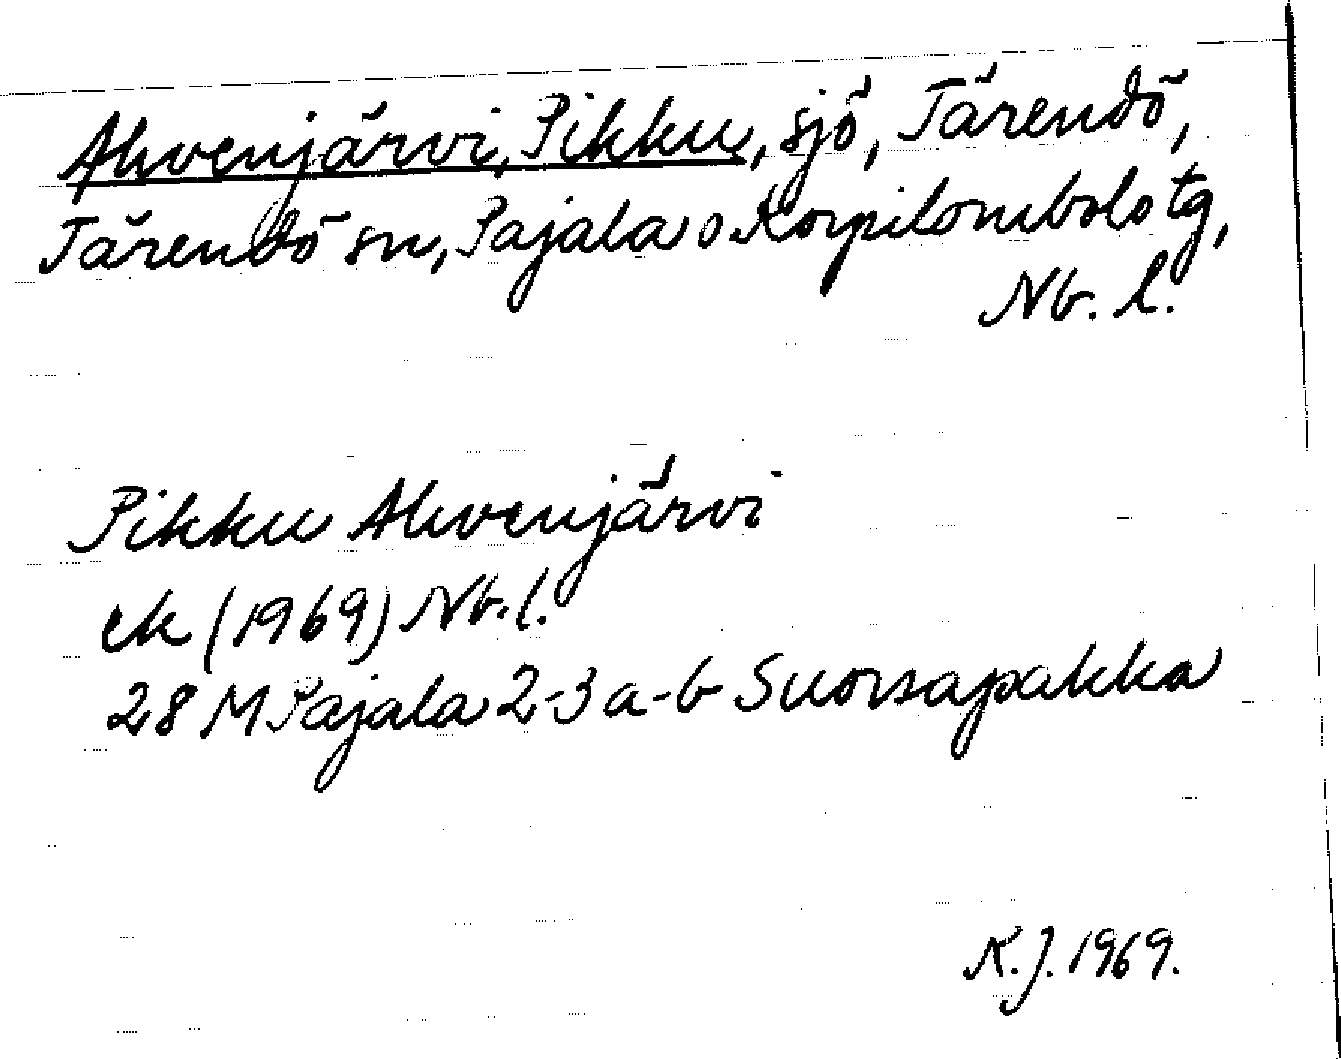 Ahvenjärvi, Pikku, sjö, Tärendö,
Tärendö sn, Pajala o Korpilombolo tg,
Nb. l.
Pikku Ahvenjärvi
ek (1969) Nb. l.
28 M Pajala 2-3 a-b Suorsapakka
K.J. 1969.